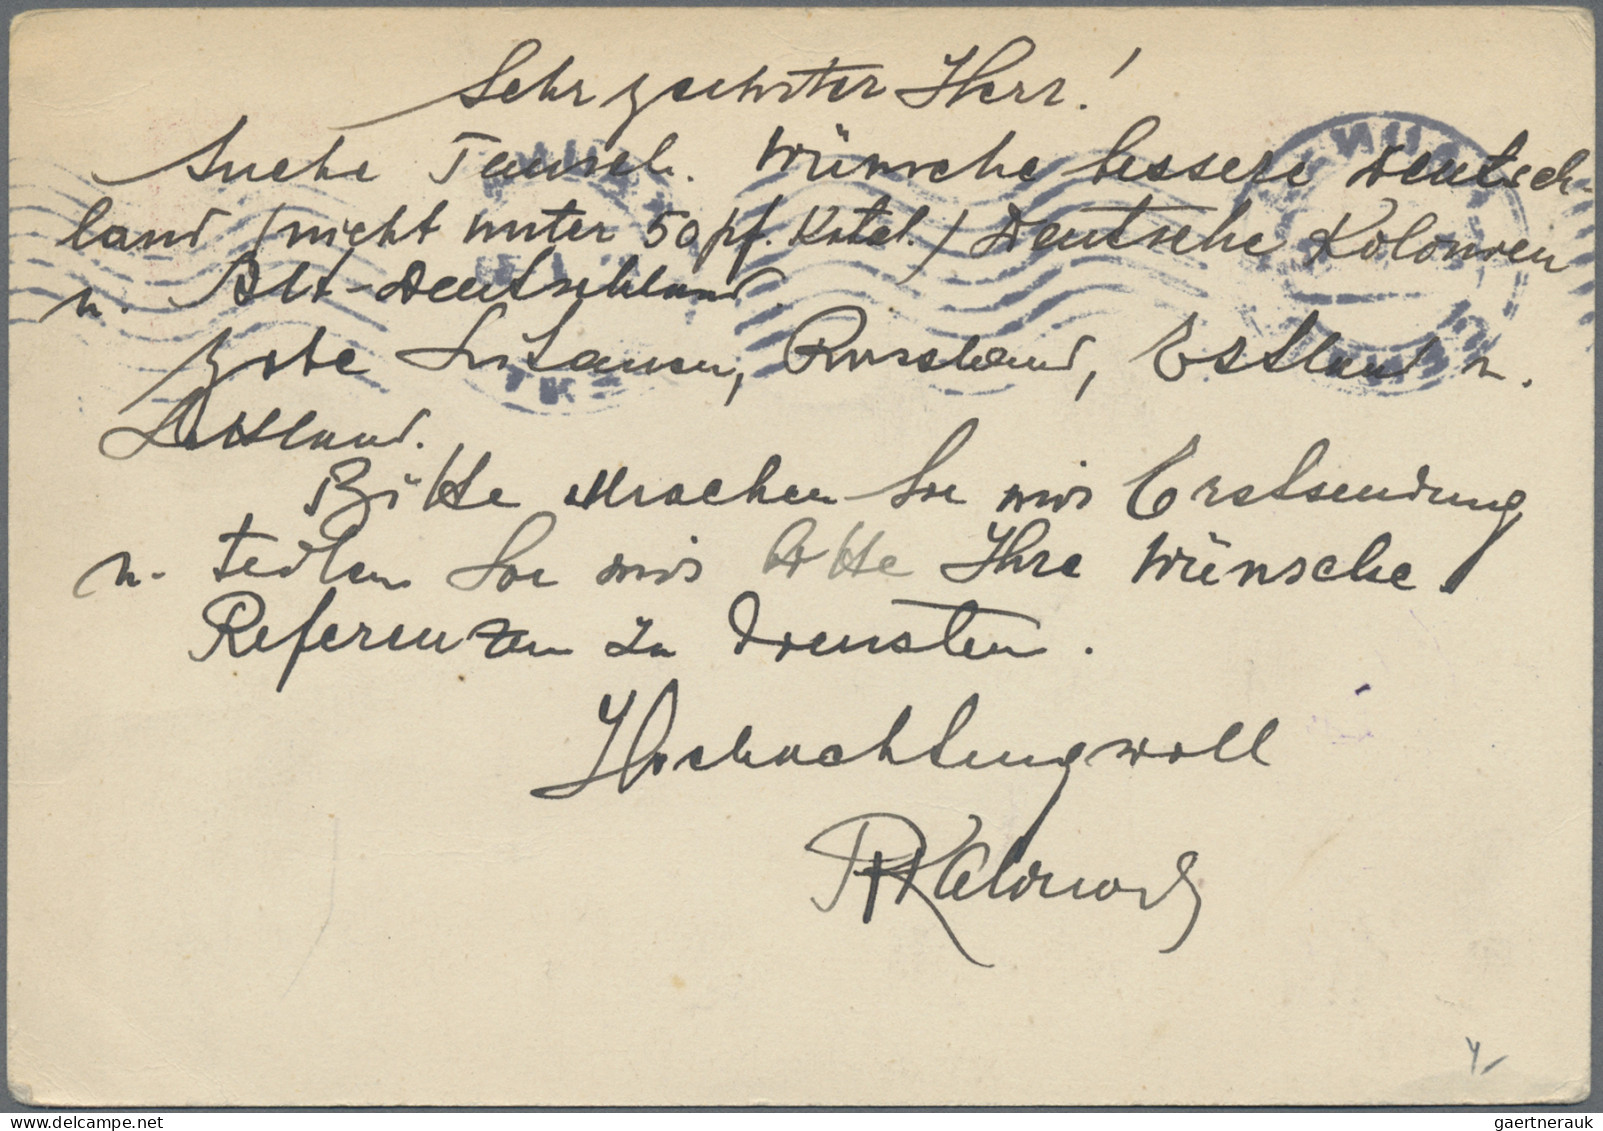 Sehr geehrter Herr!
Suche Tausch. Wünsche bessere Deutsch-
land (nicht unter 50 pf. Katal.) Deutsche Kolonien
u. Alt-Deutschland.
Gebe Litauen, Russland, Estland u.
Lettland.
Bitte machen Sie mir Erstsendung
u. teilen Sie mir bitte Ihre Wünsche
Referenzen zu Diensten.
Hochachtungsvoll
gaertnerauk